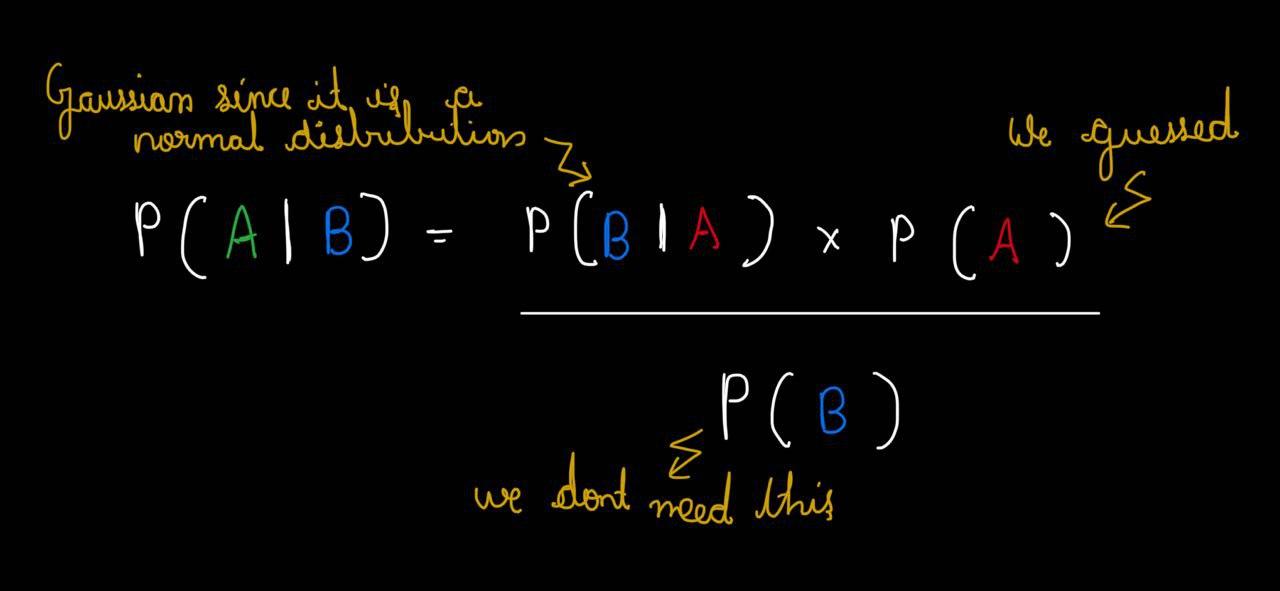 Gaussian since it is a
normal distribution
we guessed
P(A|B) = P(B|A) × P(A)
P(B)
we dont need this